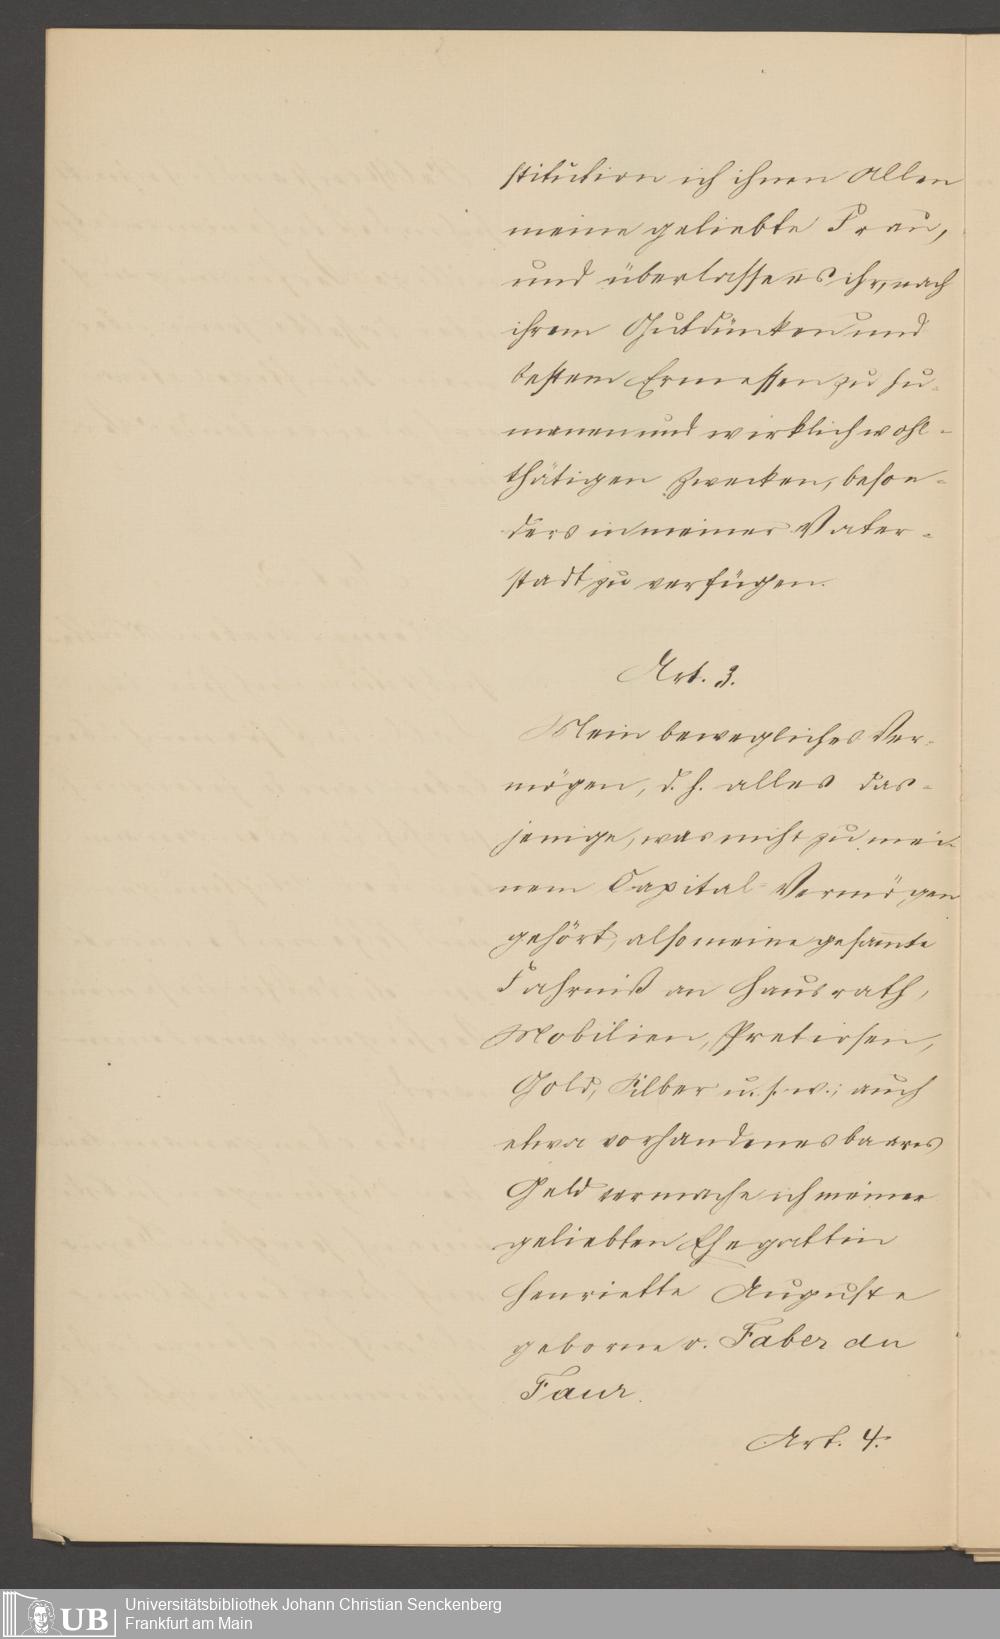 stitution ich ihnen Allen
meine geliebte Frau,
und überlasse es ihr, nach
ihrem Gutdünken und
bestem Ermessen zu hu-
manen und wirklich wohl-
thätigen Zwecken, beson-
ders in meiner Vater-
stadt zu verfügen.
Art. 3.
Mein bewegliches Ver-
mögen, d. h. alles das-
jenige, was nicht zu mei-
nem Capital-Vermögen
gehört, also meine gesamte
Fahrniß an Hausrath,
Mobilien, Pretiosen,
Gold, Silber u. s. w.; auch
etwa vorhandenes baares
Geld vermache ich meiner
geliebten Ehegattin
Henriette Auguste
geborne v. Faber du
Faur.
Art. 4.
UB
Universitätsbibliothek Johann Christian Senckenberg
Frankfurt am Main